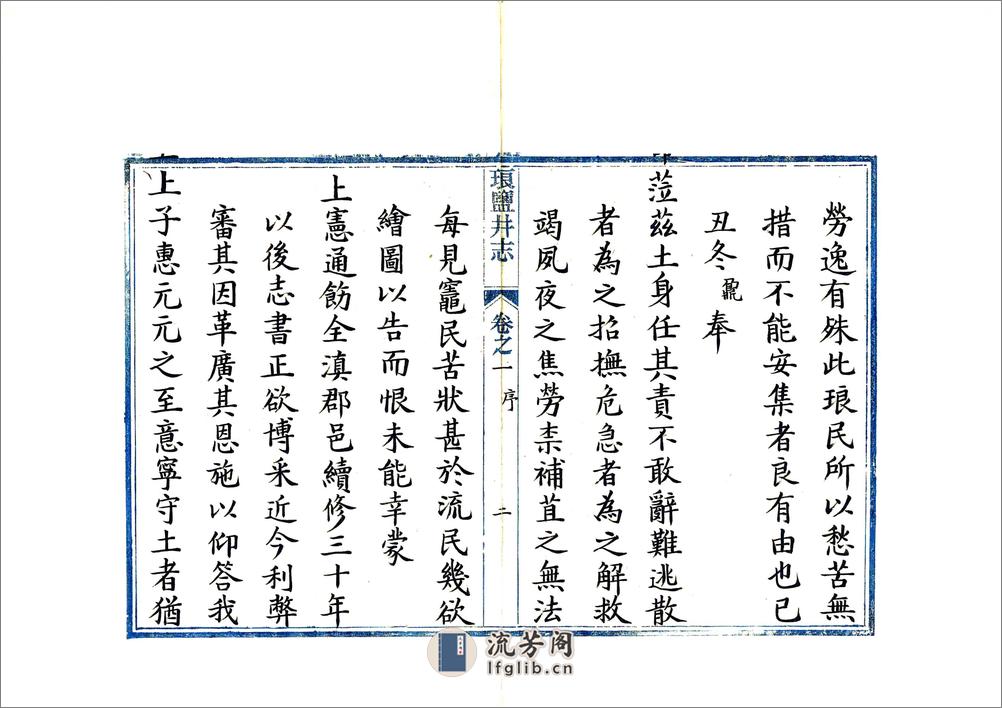 勞逸有殊此琅民所以愁苦無
措而不能安集者良有由也已
丑冬鼐奉
蒞茲土身任其責不敢辭難逃散
者為之招撫危急者為之解救
竭夙夜之焦勞柰補苴之無法
琅鹽井志 卷之一 序 二
每見竈民苦狀甚於流民幾欲
繪圖以告而恨未能幸蒙
上憲通飭全滇郡邑續修三十年
以後志書正欲博采近今利弊
審其因革廣其恩施以仰答我
上子惠元元之至意寧守土者猶
流芳阁
lfglib.cn